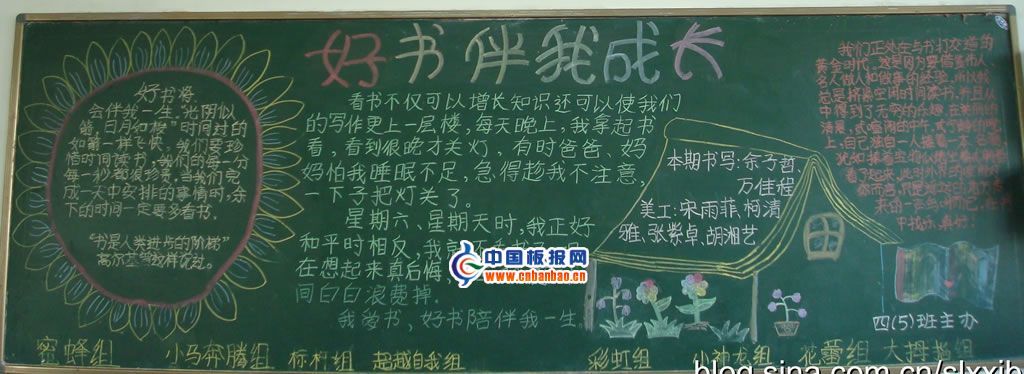 好书伴我成长
好书将
会伴我一生,“光阴似
箭,日月如梭”时间过的
如箭一样飞快。我们要珍
惜时间读书,我们的每一分
每一秒都很珍贵。当我们完
成一天中安排的事情时,余
下的时间一定要多看书。
“书是人类进步的阶梯”
高尔基曾这样说过。
看书不仅可以增长知识还可以使我们
的写作更上一层楼,每天晚上,我拿起书
看,看到很晚才关灯,有时爸爸、妈
妈怕我睡眠不足,急得趁我不注意,
一下子把灯关了。
星期六、星期天时,我正好
和平时相反,我
在想起来真后悔
间白白浪费掉.
我爱书,好书陪伴我一生
中国板报网
www.cnbanbao.cn
本期书写:余子哲、
万佳程
美工:宋雨菲,柯清
雅,张紫卓,胡湘艺
我们正处在与书打交道的
黄金时代,这是因为要借鉴伟人、
名人做人和做事的经验,所以我
总是挤需空闲时间读书,并且从
中得到了无穷的乐趣,在美丽的
清晨,
上,自己独自一人捧着一本
看了起来,
四(5)班主办
蜜蜂组 小马奔腾组 标杆组 超越自我组 彩虹组 小神龙组 花蕾组 大拇指组
blog.sina.com.cn/slxxjb